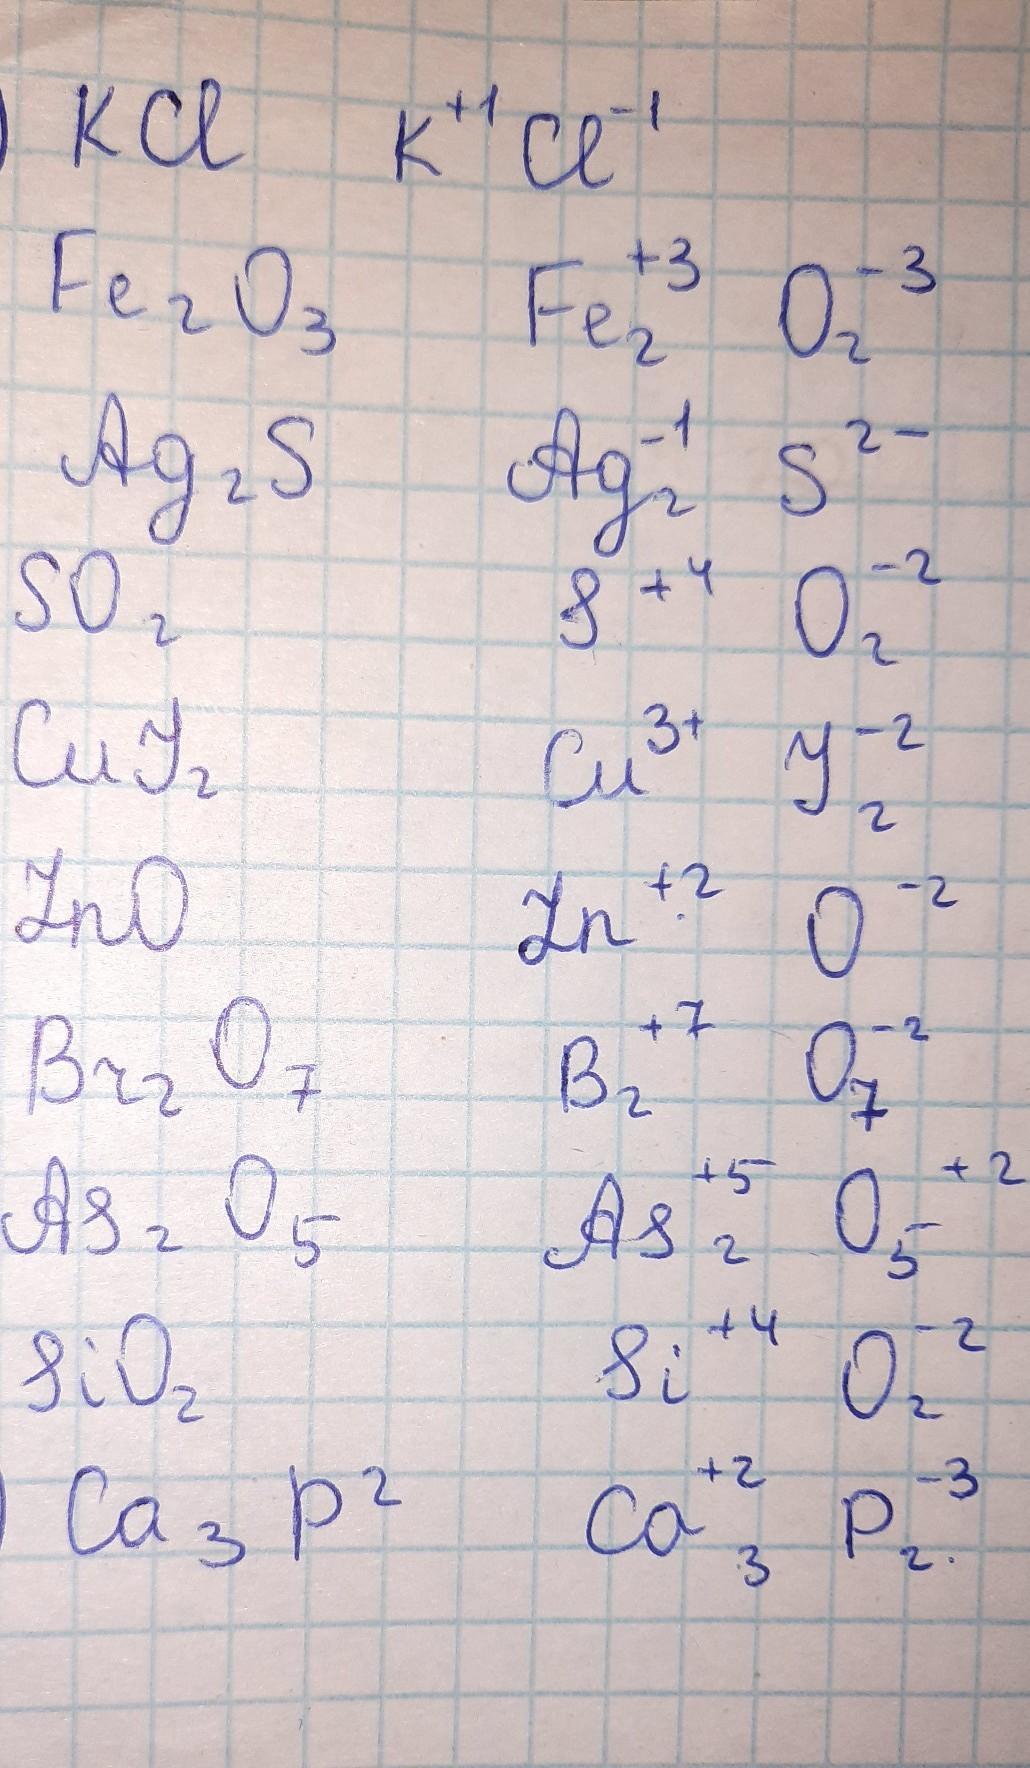 ) KCl K⁺¹ Cl⁻¹
Fe₂O₃ Fe₂⁺³ O₂⁻³
Ag₂S Ag₂⁻¹ S²⁻
SO₂ S⁺⁴ O₂⁻²
CuJ₂ Cu³⁺ J₂⁻²
ZnO Zn⁺² O⁻²
Br₂O₇ B₂⁺⁷ O₇⁻²
As₂O₅ As₂⁺⁵ O₅⁺²
SiO₂ Si⁺⁴ O₂⁻²
) Ca₃P² Ca₃⁺² P₂⁻³